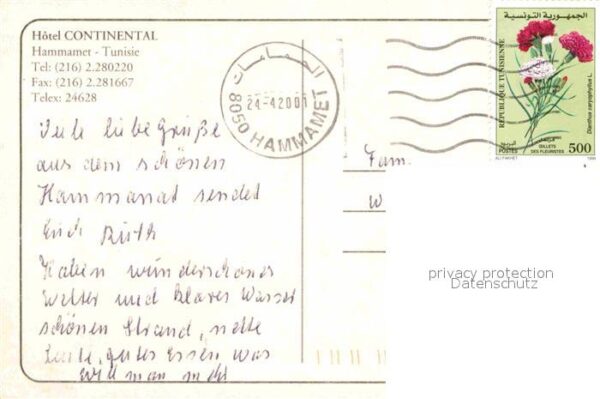 Hôtel CONTINENTAL
Hammamet - Tunisie
Tel: (216) 2.280220
Fax: (216) 2.281667
Telex: 24628
الحمامات
24-4 2001
8050 HAMMAMET
الجمهورية التونسية
REPUBLIQUE TUNISIENNE
Dianthus caryophyllus L.
قرنفل
ŒILLETS
DES FLEURISTES
البريد
POSTES
500
1999
Viele liebe Grüße
aus dem schönen
Hammamat sendet
Euch Ruth
Haben wunderschönes
Wetter und klares Wasser
schönen Strand, nette
Leute, gutes Essen was
will man mehr
Fam.
W
privacy protection
Datenschutz